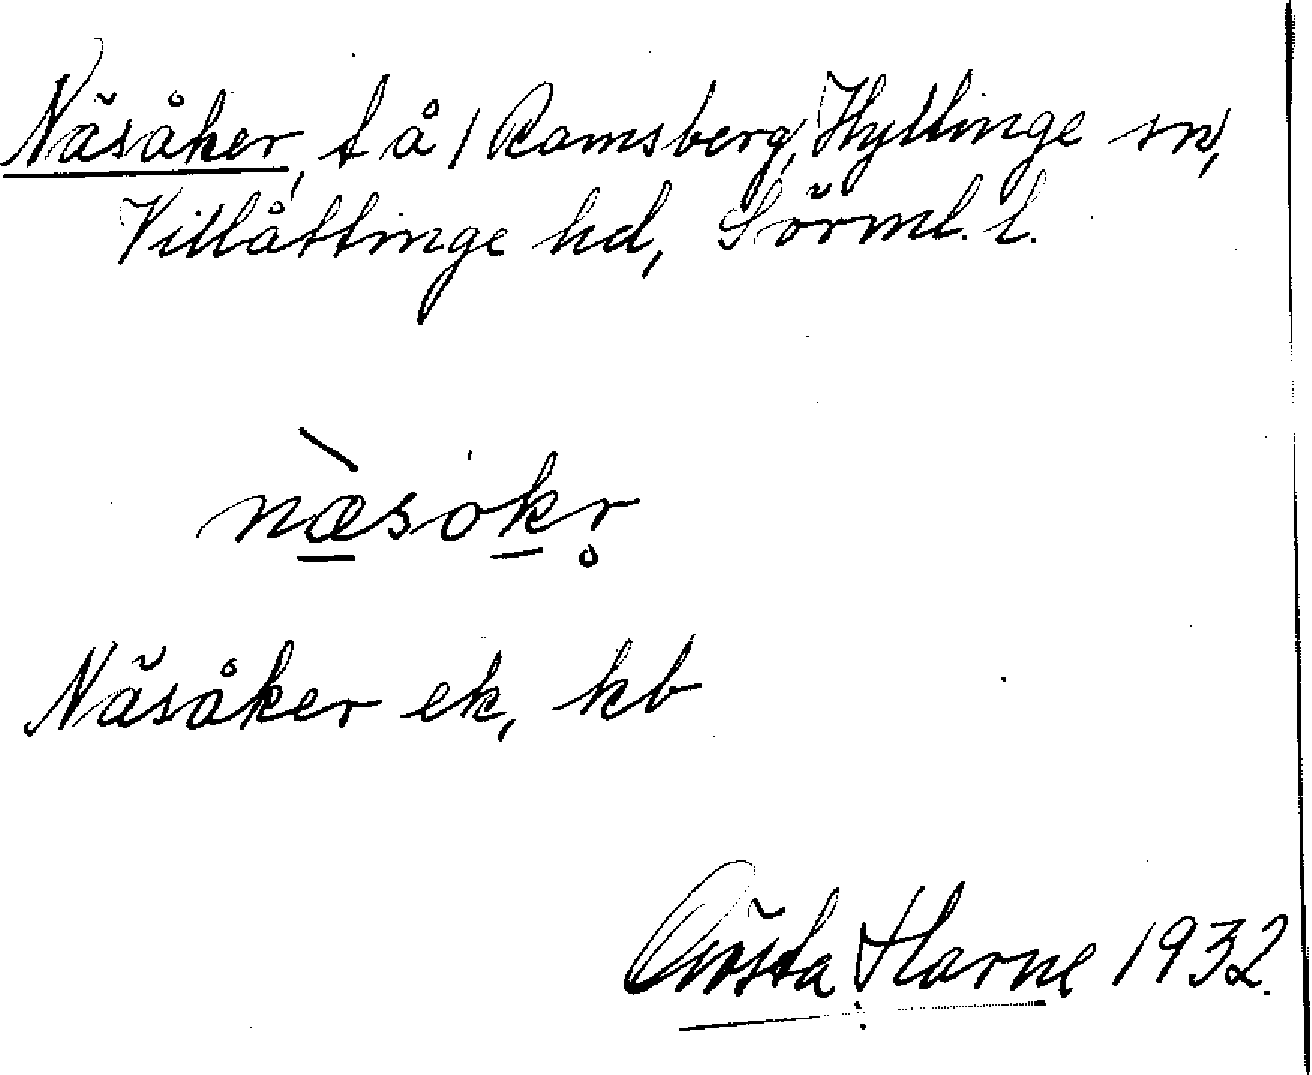 Näsåker, t å / Ramsberg, Hyltinge sn,
Villåttinge hd, Sörml. l.
næ̀sokr̥
Näsåker ek, kb
Gösta Harne 1932.